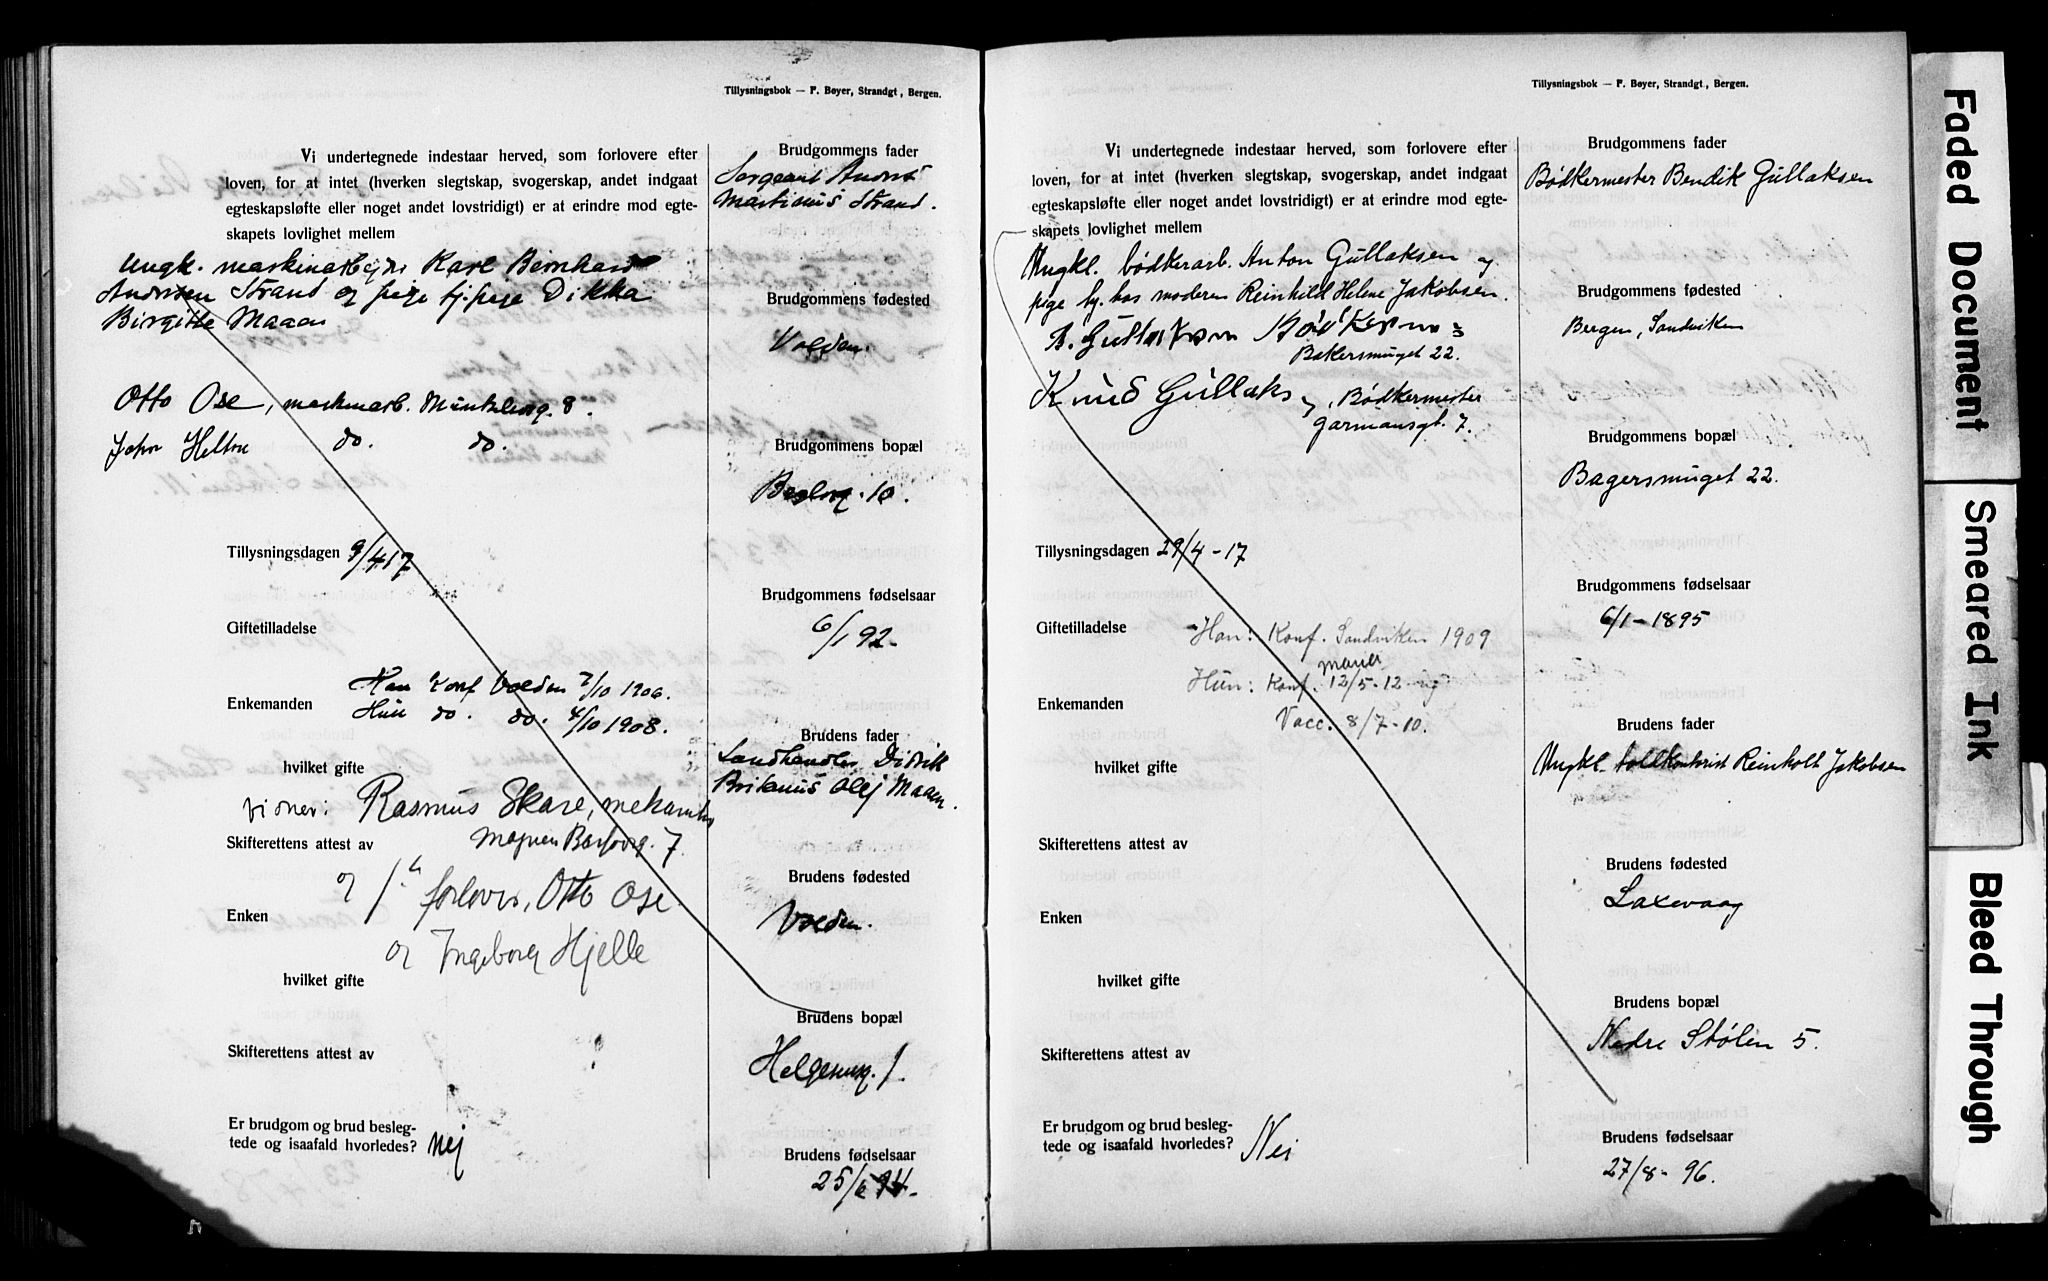 Tillysningsbok — F. Bøyer, Strandgt, Bergen.
Vi undertegnede indestaar herved, som forlovere efter
loven, for at intet (hverken slegtskap, svogerskap, andet indgaat
egteskapsløfte eller noget andet lovstridigt) er at erindre mod egte-
skapets lovlighet mellem
Ungk. maskinarbejder Karl Bernhard
Andersen Strand og pige tj.pige Dikka
Birgitte Maaen
Otto Ose, maskinarb. 8.
John do. do.
Tillysningsdagen 9/4 17
Giftetilladelse
Han Konf Volden 7/10 1906.
Enkemanden
Hun do. do. 4/10 1908.
hvilket gifte
Rasmus Skare,
Skifterettens attest av
7.
og forlover, Otto Ose
Enken
og Ingeborg Hjelle
hvilket gifte
Skifterettens attest av
Er brudgom og brud besleg-
tede og isaafald hvorledes? Nej
Brudgommens fader
Sergeant
Martinus Strand.
Brudgommens fødested
Volden.
Brudgommens bopæl
10.
Brudgommens fødselsaar
6/1 92-
Brudens fader
Landhandler Didrik
Olej Maaen.
Brudens fødested
Volden.
Brudens bopæl
1.
Brudens fødselsaar
Tillysningsbok — F. Bøyer, Strandgt, Bergen.
Vi undertegnede indestaar herved, som forlovere efter
loven, for at intet (hverken slegtskap, svogerskap, andet indgaat
egteskapsløfte eller noget andet lovstridigt) er at erindre mod egte-
skapets lovlighet mellem
Ungkl. bødkerarb. Anton Gullaksen og
pige hj. hos moderen Reinhild Helene Jakobsen.
Bakersmuget 22.
Knud Gullaksen, Bødkermester
Garmansgt. 7.
Tillysningsdagen 29/4-17
Giftetilladelse Han: Konf. Sandviken 1909
Maria
Hun: Konf. 12/5-12 og
Enkemanden
Vacc. 8/7-10.
hvilket gifte
Skifterettens attest av
Enken
hvilket gifte
Skifterettens attest av
Er brudgom og brud besleg-
tede og isaafald hvorledes? Nei
Brudgommens fader
Bødkermester Bendik Gullaksen
Brudgommens fødested
Bergen, Sandviken
Brudgommens bopæl
Bagersmuget 22.
Brudgommens fødselsaar
6/1-1895
Brudens fader
Ungkl. Reinholt Jakobsen
Brudens fødested
Laxevaag
Brudens bopæl
Nedre Stølen 5.
Brudens fødselsaar
27/8-96.
Faded Document
Smeared Ink
Bleed Through